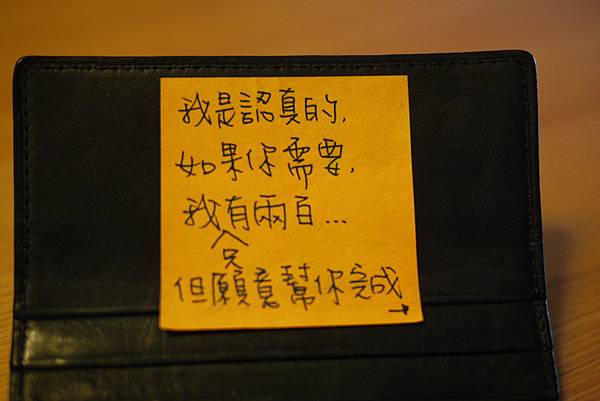 我是認真的,
如果你需要,
我只有兩百...
但願意幫你完成
→